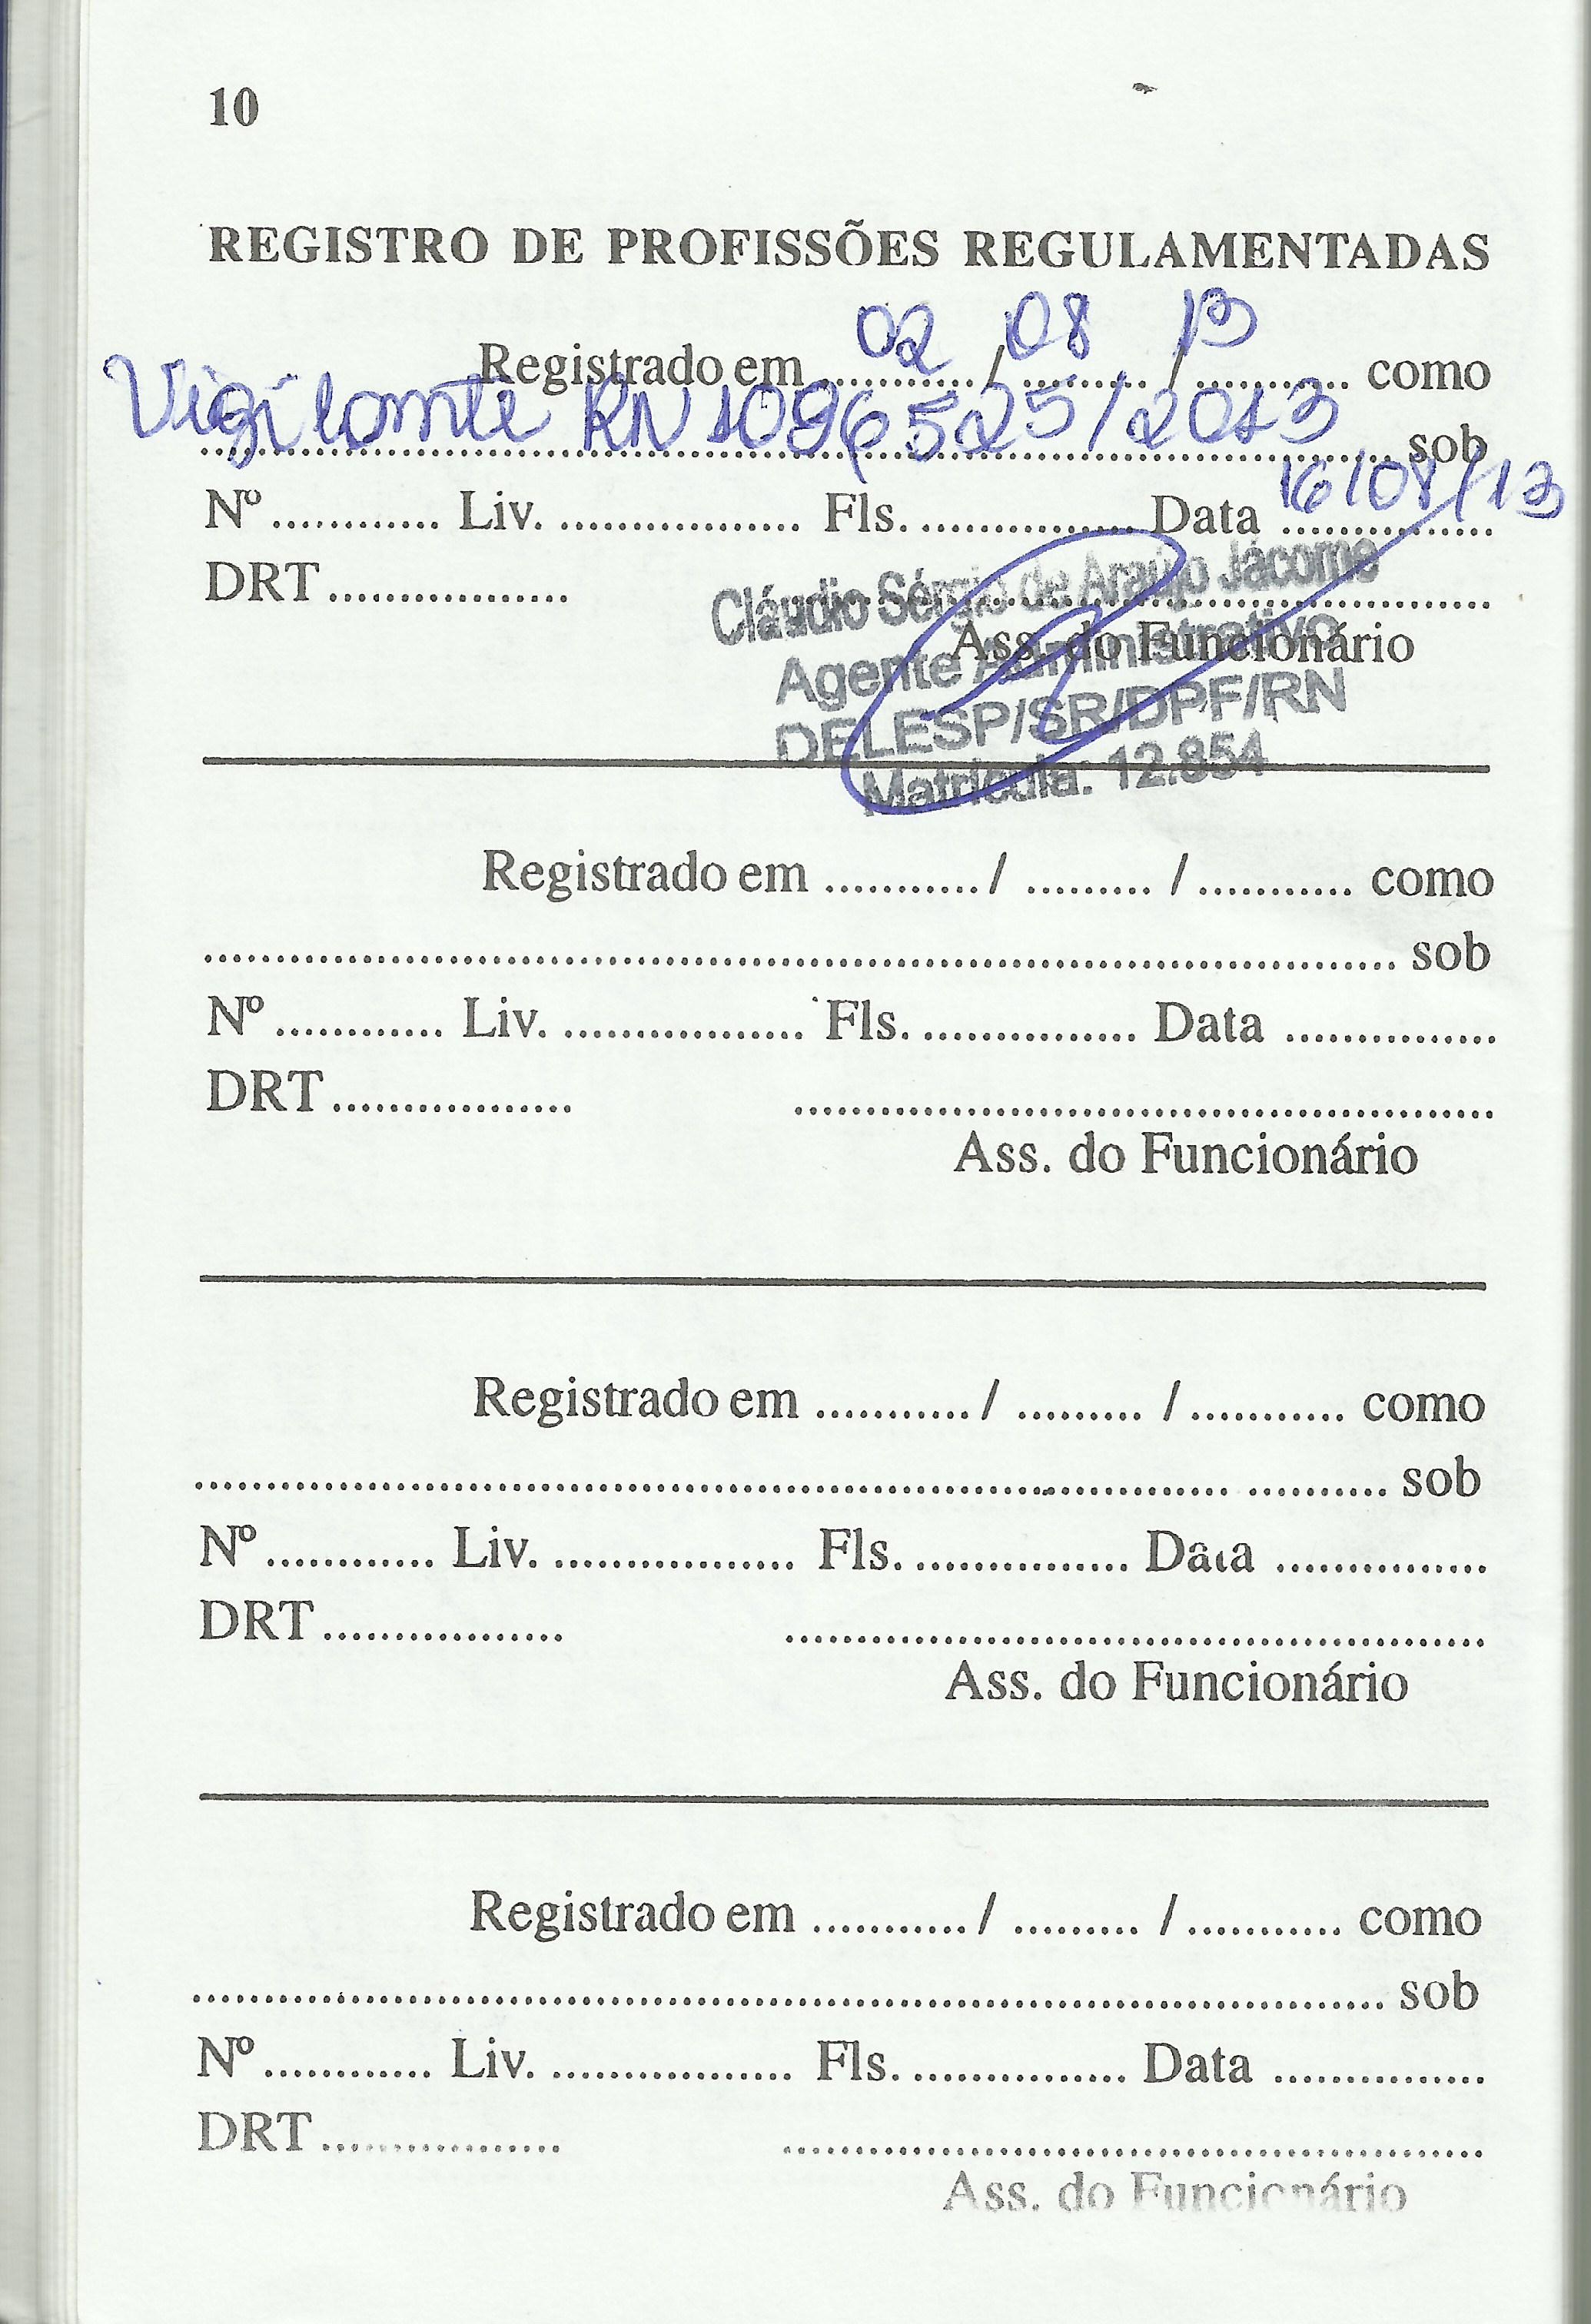 10
REGISTRO DE PROFISSÕES REGULAMENTADAS
Registrado em 02 / 08 / 13 como
Vigilante RN 1096525/2013 sob
Nº ............ Liv. ................. Fls. ............... Data 16/08/13
DRT .................
Cláudio Sérgio de Araújo Jácome
Ass. do Funcionário
Agente Administrativo
DELESP/SR/DPF/RN
Matrícula: 12.854
Registrado em ........... / ......... / ........... como
.................................................................................. sob
Nº ............ Liv. ................. Fls. ............... Data ...............
DRT ................. .................................................
Ass. do Funcionário
Registrado em ........... / ......... / ........... como
.................................................................................. sob
Nº ............ Liv. ................. Fls. ............... Data ...............
DRT ................. .................................................
Ass. do Funcionário
Registrado em ........... / ......... / ........... como
.................................................................................. sob
Nº ............ Liv. ................. Fls. ............... Data ...............
DRT ................. .................................................
Ass. do Funcionário